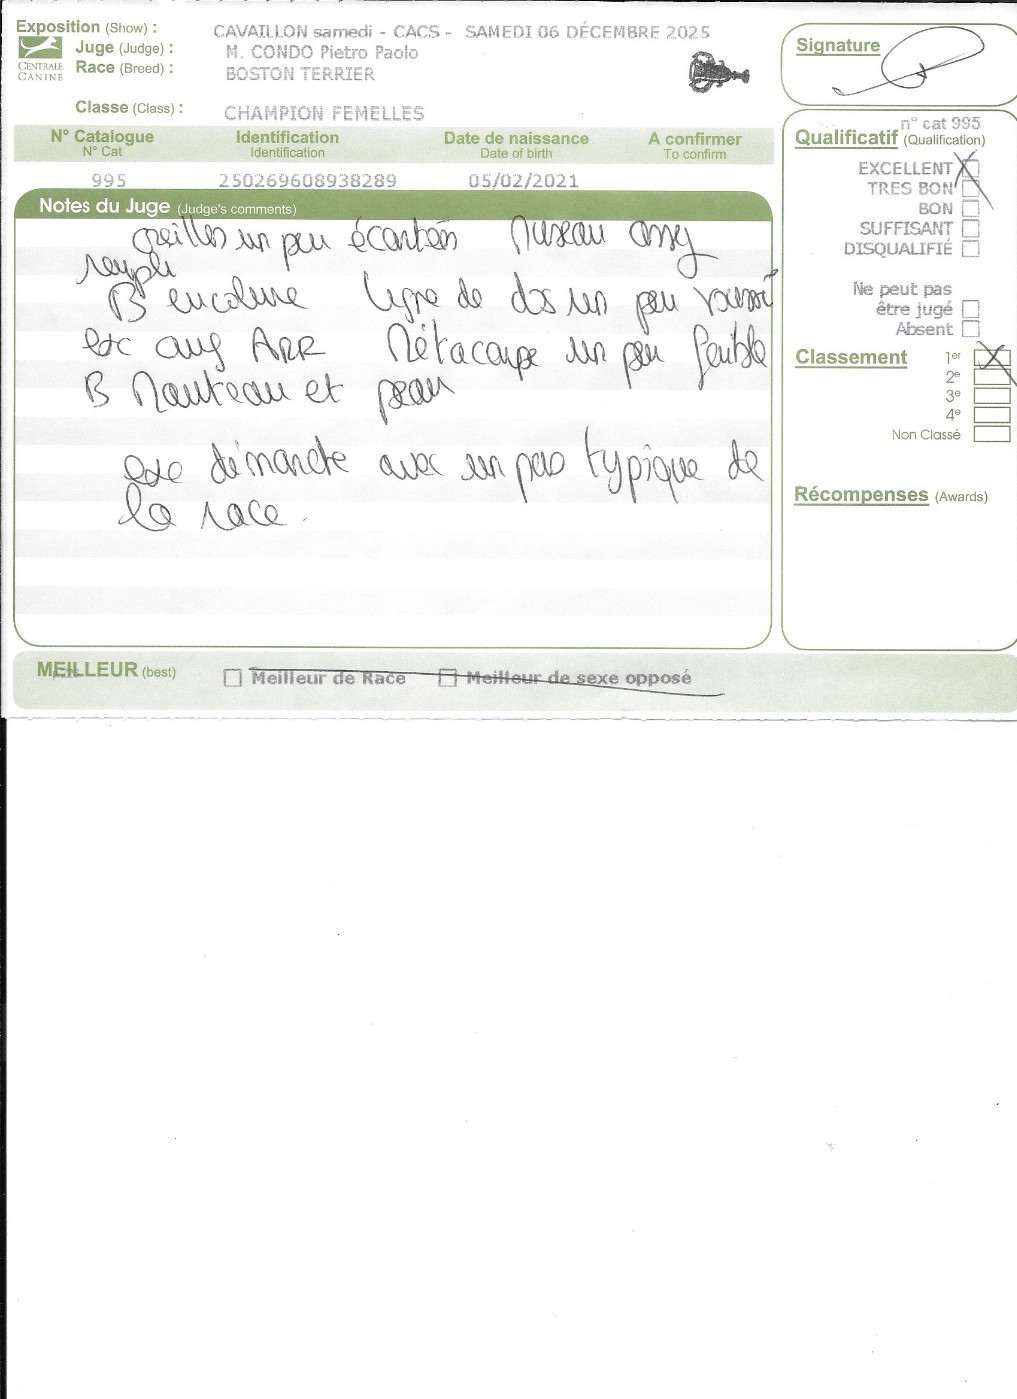 Exposition (Show) : CAVAILLON samedi - CACS - SAMEDI 06 DÉCEMBRE 2025
Juge (Judge) : M. CONDO Pietro Paolo
Race (Breed) : BOSTON TERRIER
CENTRALE
CANINE
Classe (Class) : CHAMPION FEMELLES
N° Catalogue Identification Date de naissance A confirmer
N° Cat Identification Date of birth To confirm
995 250269608938289 05/02/2021
Notes du Juge (Judge's comments)
oreilles un peu écartées Museau assez
rempli
B encolure ligne de dos un peu
exc ang ARR Métacarpe un peu faible
B Manteau et peau
exc démarche avec un pas typique de
la race.
MEILLEUR (best) Meilleur de Race Meilleur de sexe opposé
Signature
n° cat 995
Qualificatif (Qualification)
EXCELLENT
TRES BON
BON
SUFFISANT
DISQUALIFIÉ
Ne peut pas
être jugé
Absent
Classement 1er
2e
3e
4e
Non Classé
Récompenses (Awards)